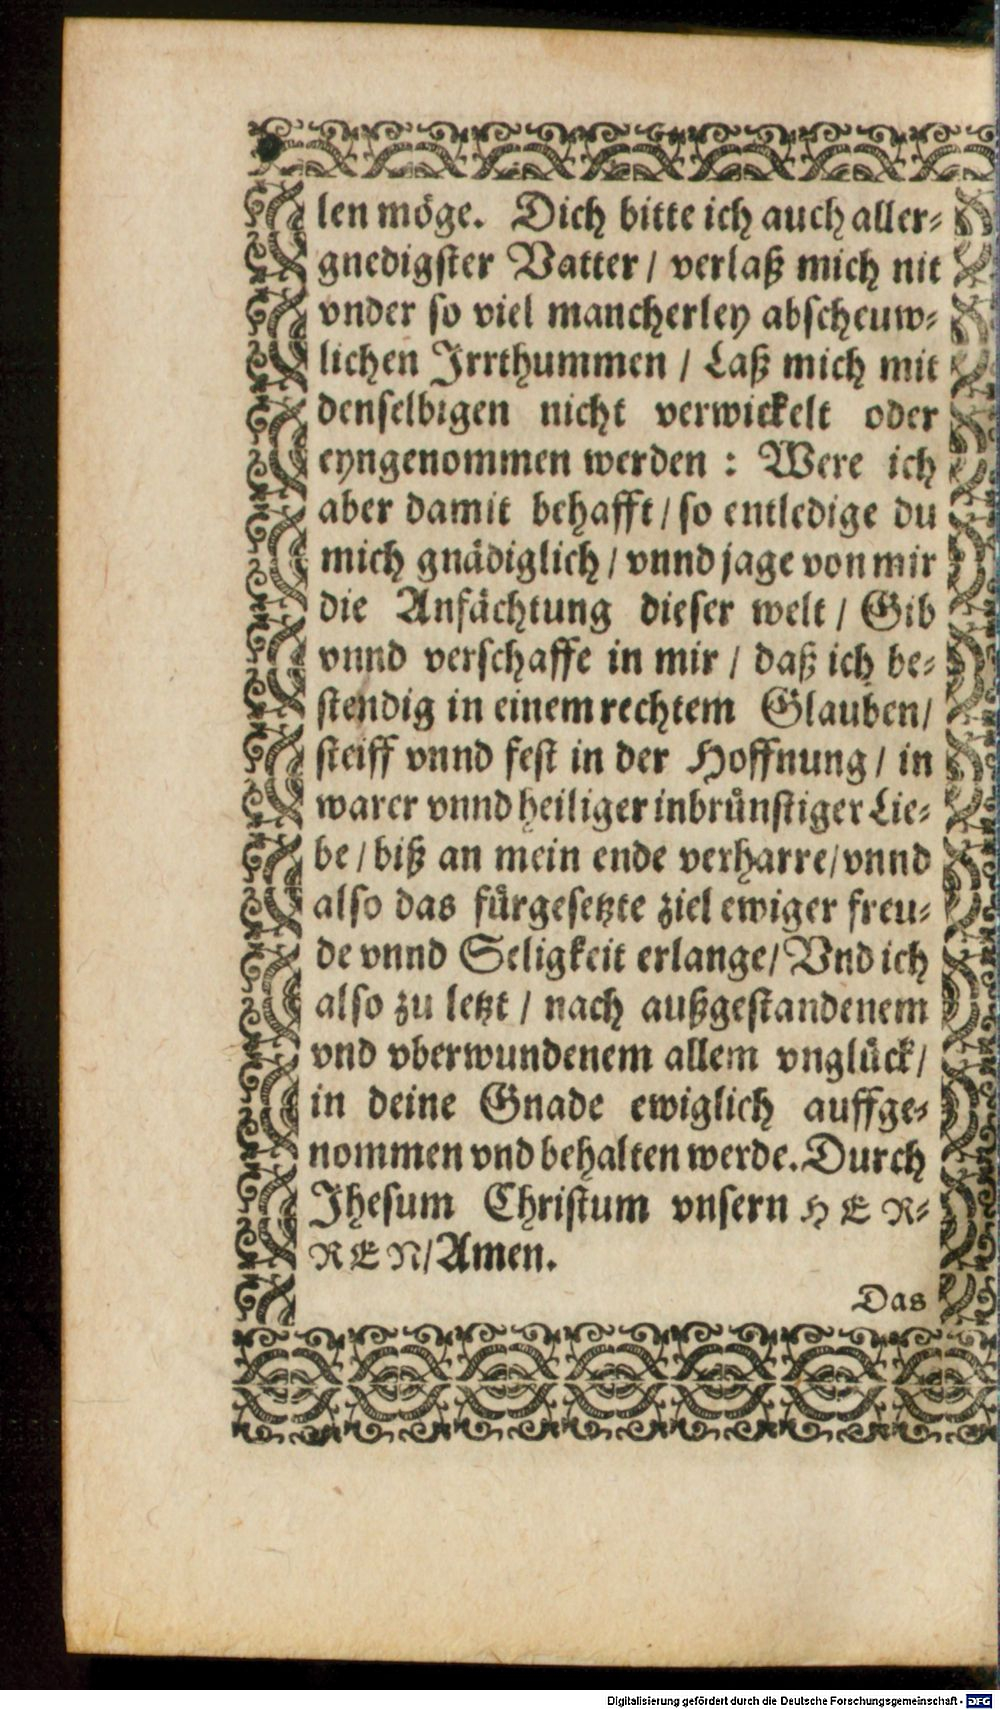 len möge. Dich bitte ich auch aller⸗
gnedigster Vatter / verlaß mich nit
vnder so viel mancherley abscheuw⸗
lichen Irrthummen / Laß mich mit
denselbigen nicht verwickelt oder
eyngenommen werden : Were ich
aber damit behafft / so entledige du
mich gnädiglich / vnnd jage von mir
die Anfächtung dieser welt / Gib
vnnd verschaffe in mir / daß ich be⸗
stendig in einem rechtem Glauben /
steiff vnnd fest in der Hoffnung / in
warer vnnd heiliger inbrünstiger Lie⸗
be / biß an mein ende verharre / vnnd
also das fürgesetzte ziel ewiger freu⸗
de vnnd Seligkeit erlange / Vnd ich
also zu letzt / nach außgestandenem
vnd vberwundenem allem vnglück /
in deine Gnade ewiglich auffge⸗
nommen vnd behalten werde. Durch
Jhesum Christum vnsern HER⸗
REN / Amen.
Das
Digitalisierung gefördert durch die Deutsche Forschungsgemeinschaft - DFG